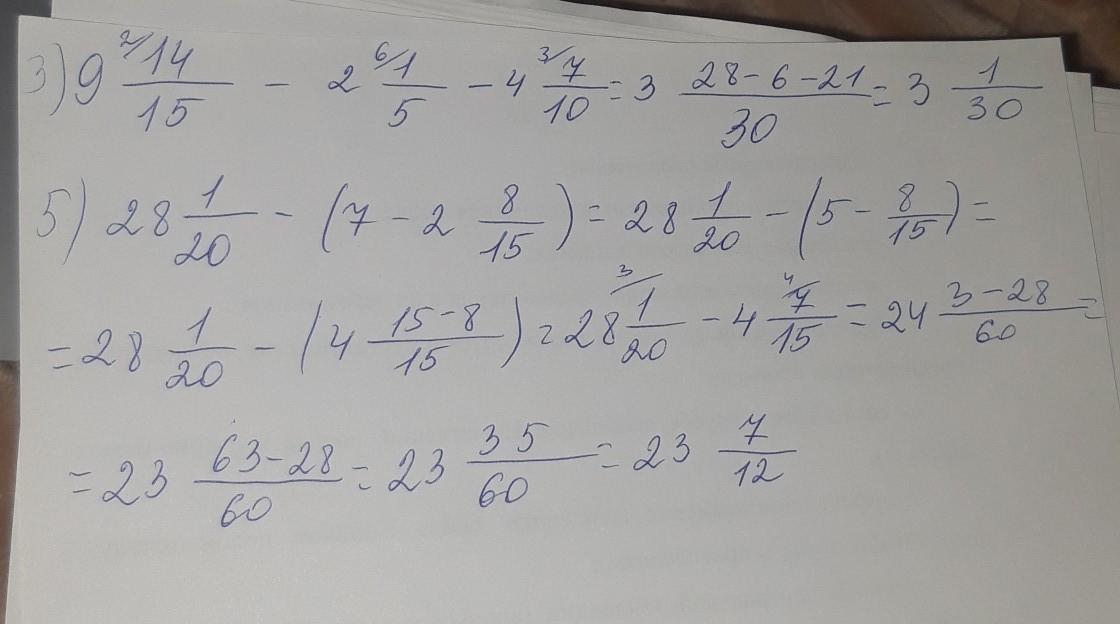 3) 9 2/14/15 - 2 6/1/5 - 4 3/7/10 = 3 28-6-21/30 = 3 1/30
5) 28 1/20 - (7 - 2 8/15) = 28 1/20 - (5 - 8/15) =
= 28 1/20 - (4 15-8/15) = 28 3/1/20 - 4 4/7/15 = 24 3-28/60 =
= 23 63-28/60 = 23 35/60 = 23 7/12